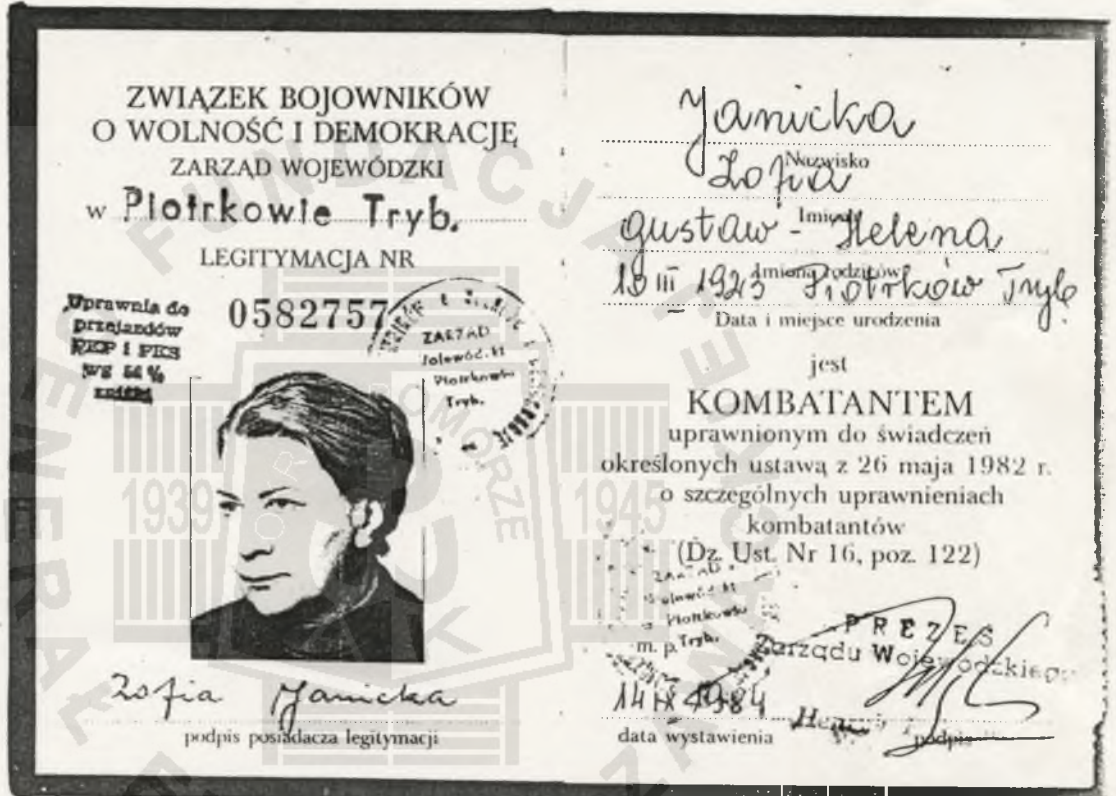 ZWIĄZEK BOJOWNIKÓW
O WOLNOŚĆ I DEMOKRACJĘ
ZARZĄD WOJEWÓDZKI
w Piotrkowie Tryb.
LEGITYMACJA NR
0582757
Uprawnia do
przejazdów
PKP i PKS
zniżki
ZARZĄD
Piotrków
Tryb.
Zofia Janicka
podpis posiadacza legitymacji
Janicka
Nazwisko
Zofia
Imię
Gustaw - Helena
Imiona rodziców
III 1923 Piotrków Tryb
Data i miejsce urodzenia
jest
KOMBATANTEM
uprawnionym do świadczeń
określonych ustawą z 26 maja 1982 r.
o szczególnych uprawnieniach
kombatantów
(Dz. Ust. Nr 16, poz. 122)
ZARZĄD
Tryb.
m. p.
PREZES
Zarządu Wojewódzkiego
14 IX 1984
data wystawienia
podpis
FUNDACJA GENERAŁ
POMORZE
AK
1939
1945